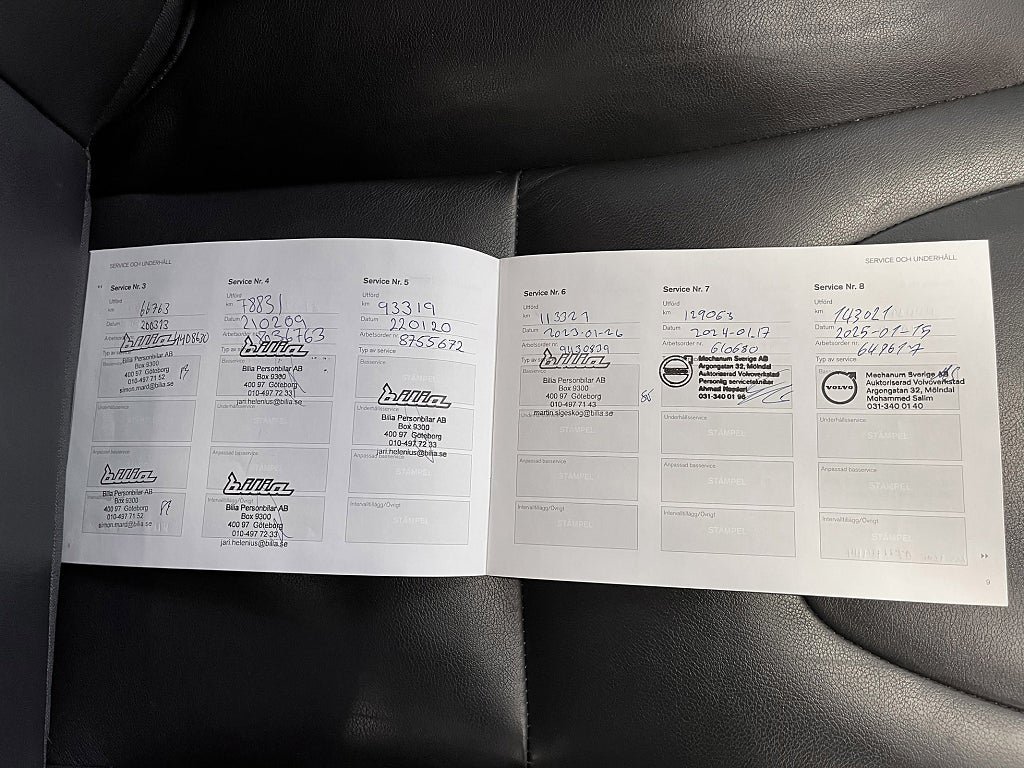 SERVICE OCH UNDERHÅLL
Service Nr. 3
Utförd
km 66763
Datum 200313
Arbetsorder nr.
Typ av service
bilia
Bilia Personbilar AB
Box 9300
400 97 Göteborg
010-497 71 52
simon.mard@bilia.se
Underhållsservice
STÄMPEL
Anpassad basservice
bilia
Bilia Personbilar AB
Box 9300
400 97 Göteborg
010-497 71 52
simon.mard@bilia.se
Service Nr. 4
Utförd
km 78831
Datum 210209
Arbetsorder nr.
Typ av service
bilia
Basservice
Bilia Personbilar AB
Box 9300
400 97 Göteborg
010-497 72 33
jari.helenius@bilia.se
Underhållsservice
STÄMPEL
Anpassad basservice
bilia
Intervalltillägg/Övrigt
Bilia Personbilar AB
Box 9300
400 97 Göteborg
010-497 72 33
jari.helenius@bilia.se
Service Nr. 5
Utförd
km 93319
Datum 220120
Arbetsorder nr. 8755672
Typ av service
Basservice
STÄMPEL
bilia
Underhållsservice
Bilia Personbilar AB
Box 9300
400 97 Göteborg
010-497 72 33
Anpassad basservice
jari.helenius@bilia.se
STÄMPEL
Intervalltillägg/Övrigt
STÄMPEL
Service Nr. 6
Utförd
km 113321
Datum 2023-01-26
Arbetsorder nr. 9430839
Typ av service
bilia
Bilia Personbilar AB
Box 9300
400 97 Göteborg
010-497 71 43
martin.sigeskog@bilia.se
Underhållsservice
STÄMPEL
Anpassad basservice
STÄMPEL
Intervalltillägg/Övrigt
STÄMPEL
SERVICE OCH UNDERHÅLL
Service Nr. 7
Utförd
km 129063
Datum 2024-01.17
Arbetsorder nr. 610680
Typ av service
Mechanum Sverige AB
Argongatan 32, Mölndal
Auktoriserad Volvoverkstad
Personlig servicetekniker
Ahmad
031-340 01
Underhållsservice
STÄMPEL
Anpassad basservice
STÄMPEL
Intervalltillägg/Övrigt
STÄMPEL
Service Nr. 8
Utförd
km 143021
Datum 2025-01-15
Arbetsorder nr. 649617
Typ av service
Basservice
VOLVO
Mechanum Sverige AB
Auktoriserad Volvoverkstad
Argongatan 32, Mölndal
Mohammed Salim
031-340 01 40
Underhållsservice
STÄMPEL
Anpassad basservice
STÄMPEL
Intervalltillägg/Övrigt
STÄMPEL
9